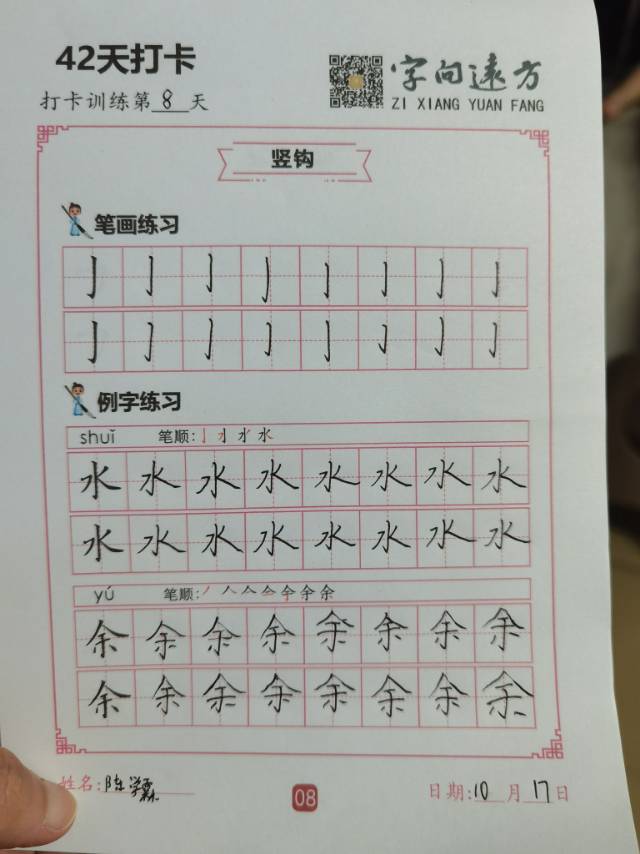 42天打卡
打卡训练第8天
字向远方
ZI XIANG YUAN FANG
竖钩
笔画练习
亅亅亅亅亅亅亅亅
亅亅亅亅亅亅亅亅
例字练习
shuǐ 笔顺:
水水水水水水水水
水水水水水水水水
yú 笔顺:
余余余余余余余余
余余余余余余余余
姓名:陈
08
日期:10月17日